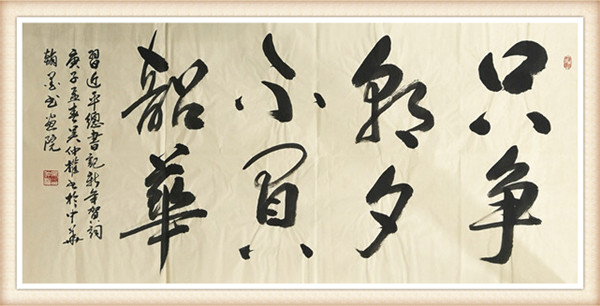 只争
朝夕
不负
韶華
習近平總書記新年賀詞
庚子孟春吴仲權书於中華
翰墨书画院